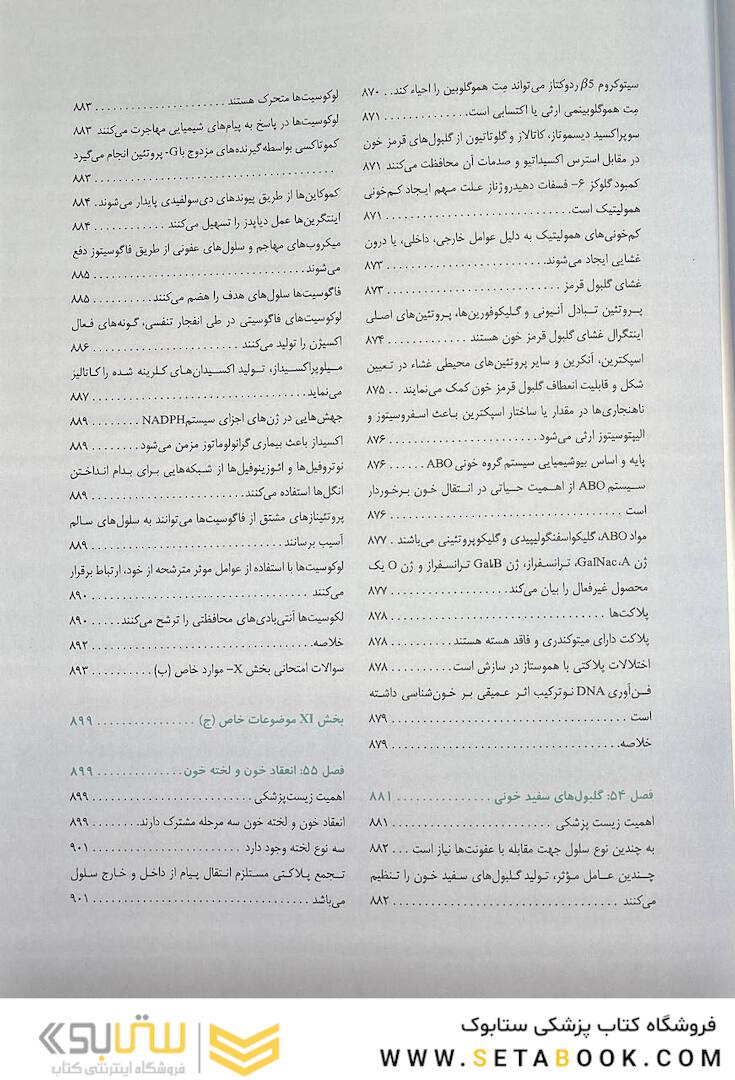 سیتوکروم β5 ردوکتاز می‌تواند مِت هموگلوبین را احیاء کند.. ۸۷۰
مِت هموگلوبینمی ارثی یا اکتسابی است. . . . . . . . . . . . . . ۸۷۱
سوپراکسید دیسموتاز، کاتالاز و گلوتاتیون از گلبول‌های قرمز خون
در مقابل استرس اکسیداتیو و صدمات آن محافظت می‌کنند ۸۷۱
کمبود گلوکز ۶- فسفات دهیدروژناز علت مهم ایجاد کم‌خونی
همولیتیک است. . . . . . . . . . . . . . . . . . . . . . . . . . . . ۸۷۱
کم‌خونی‌های همولیتیک به دلیل عوامل خارجی، داخلی، یا درون
غشایی ایجاد می‌شوند. . . . . . . . . . . . . . . . . . . . . . . ۸۷۳
غشای گلبول قرمز . . . . . . . . . . . . . . . . . . . . . . . . . ۸۷۳
پروتئین تبادل آنیونی و گلیکوفورین‌ها، پروتئین‌های اصلی
اینتگرال غشای گلبول قرمز خون هستند . . . . . . . . . . . . ۸۷۴
اسپکترین، آنکرین و سایر پروتئین‌های محیطی غشاء در تعیین
شکل و قابلیت انعطاف گلبول قرمز خون کمک می‌نمایند . . ۸۷۵
ناهنجاری‌ها در مقدار یا ساختار اسپکترین باعث اسفروسیتوز و
الیپتوسیتوز ارثی می‌شود . . . . . . . . . . . . . . . . . . . . . . ۸۷۶
پایه و اساس بیوشیمیایی سیستم گروه خونی ABO . . . . . . ۸۷۶
سیستم ABO از اهمیت حیاتی در انتقال خون برخوردار
است . . . . . . . . . . . . . . . . . . . . . . . . . . . . . . . . . ۸۷۶
مواد ABO، گلیکواسفنگولیپیدی و گلیکوپروتئینی می‌باشند . ۸۷۷
ژن GalNac،A، ترانسفراز، ژن GalB ترانسفراز و ژن O یک
محصول غیرفعال را بیان می‌کند. . . . . . . . . . . . . . . . . . ۸۷۷
پلاکت‌ها . . . . . . . . . . . . . . . . . . . . . . . . . . . . . . . ۸۷۸
پلاکت دارای میتوکندری و فاقد هسته هستند . . . . . . . . . . ۸۷۸
اختلالات پلاکتی با هموستاز در سازش است. . . . . . . . . . . ۸۷۸
فن‌آوری DNA نوترکیب اثر عمیقی بر خون‌شناسی داشته
است . . . . . . . . . . . . . . . . . . . . . . . . . . . . . . . . . ۸۷۹
خلاصه. . . . . . . . . . . . . . . . . . . . . . . . . . . . . . . . . ۸۷۹
فصل ۵۴: گلبول‌های سفید خونی . . . . . . . . . . . . . . ۸۸۱
اهمیت زیست پزشکی . . . . . . . . . . . . . . . . . . . . . . . ۸۸۱
به چندین نوع سلول جهت مقابله با عفونت‌ها نیاز است . . . ۸۸۲
چندین عامل مؤثر، تولید گلبول‌های سفید خون را تنظیم
می‌کنند . . . . . . . . . . . . . . . . . . . . . . . . . . . . . . . ۸۸۲
لوکوسیت‌ها متحرک هستند . . . . . . . . . . . . . . . . . . . . . ۸۸۳
لوکوسیت‌ها در پاسخ به پیام‌های شیمیایی مهاجرت می‌کنند ۸۸۳
کموتاکسی بواسطه گیرنده‌های مزدوج با G- پروتئین انجام می‌گیرد
. . . . . . . . . . . . . . . . . . . . . . . . . . . . . . . . . . . . . ۸۸۳
کموکاین‌ها از طریق پیوندهای دی‌سولفیدی پایدار می‌شوند. ۸۸۴
اینتگرین‌ها عمل دیاپدز را تسهیل می‌کنند . . . . . . . . . . . . ۸۸۴
میکروب‌های مهاجم و سلول‌های عفونی از طریق فاگوسیتوز دفع
می‌شوند. . . . . . . . . . . . . . . . . . . . . . . . . . . . . . . . . ۸۸۵
فاگوسیت‌ها سلول‌های هدف را هضم می‌کنند . . . . . . . . . . ۸۸۵
لوکوسیت‌های فاگوسیتی در طی انفجار تنفسی، گونه‌های فعال
اکسیژن را تولید می‌کنند . . . . . . . . . . . . . . . . . . . . . . ۸۸۶
میلوپراکسیداز، تولید اکسیدان‌های کلرینه شده را کاتالیز
می‌نماید. . . . . . . . . . . . . . . . . . . . . . . . . . . . . . . . . ۸۸۷
جهش‌هایی در ژن‌های اجزای سیستم NADPH . . . . . . . . ۸۸۹
اکسیداز باعث بیماری گرانولوماتوز مزمن می‌شود. . . . . . . . ۸۸۹
نوتروفیل‌ها و ائوزینوفیل‌ها از شبکه‌هایی برای بدام انداختن
انگل‌ها استفاده می‌کنند. . . . . . . . . . . . . . . . . . . . . . . ۸۸۹
پروتئینازهای مشتق از فاگوسیت‌ها می‌توانند به سلول‌های سالم
آسیب برسانند . . . . . . . . . . . . . . . . . . . . . . . . . . . . ۸۸۹
لوکوسیت‌ها با استفاده از عوامل موثر مترشحه از خود، ارتباط برقرار
می‌کنند . . . . . . . . . . . . . . . . . . . . . . . . . . . . . . . . ۸۹۰
لکوسیت‌ها آنتی‌بادی‌های محافظتی را ترشح می‌کنند. . . . . ۸۹۰
خلاصه. . . . . . . . . . . . . . . . . . . . . . . . . . . . . . . . . . ۸۹۲
سوالات امتحانی بخش X- موارد خاص (ب) . . . . . . . . . . ۸۹۳
بخش XI موضوعات خاص (ج) . . . . . . . . . . . . . . . . ۸۹۹
فصل ۵۵: انعقاد خون و لخته خون. . . . . . . . . . . . . . ۸۹۹
اهمیت زیست‌پزشکی . . . . . . . . . . . . . . . . . . . . . . . . ۸۹۹
انعقاد خون و لخته خون سه مرحله مشترک دارند. . . . . . . . ۸۹۹
سه نوع لخته وجود دارد . . . . . . . . . . . . . . . . . . . . . . ۹۰۱
تجمع پلاکتی مستلزم انتقال پیام از داخل و خارج سلول
می‌باشد . . . . . . . . . . . . . . . . . . . . . . . . . . . . . . . . ۹۰۱
فروشگاه کتاب پزشکی ستابوک
WWW.SETABOOK.COM
ستابوک
فروشگاه اینترنتی کتاب